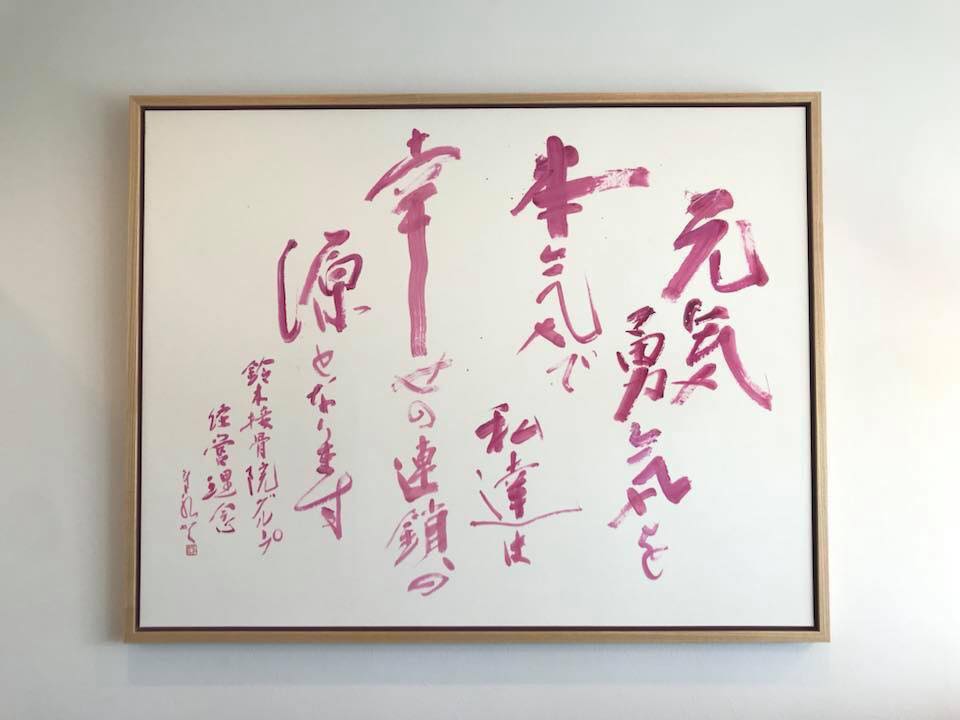 元気
勇気を
本気で
私達は
幸せの連鎖の
源となります
鈴木接骨院グループ
経営理念